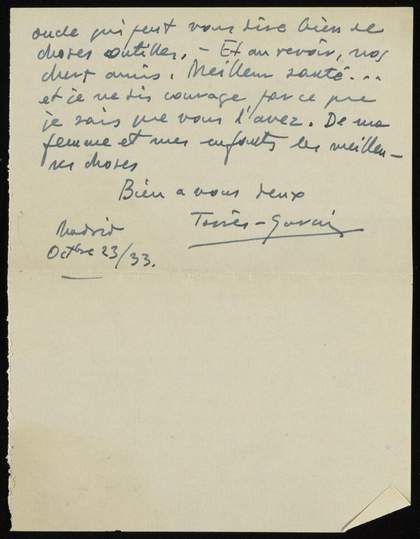 qui peut vous dire bien de
choses utiles. – Et au revoir, nos
chers amis. Meilleur santé...
et je ne dis courage, parce que
je sais que vous l'avez. De ma
femme et mes enfants les meilleu-
res choses
Bien a vous deux
Torrès-Garcia
Madrid
Octbre 23/33.